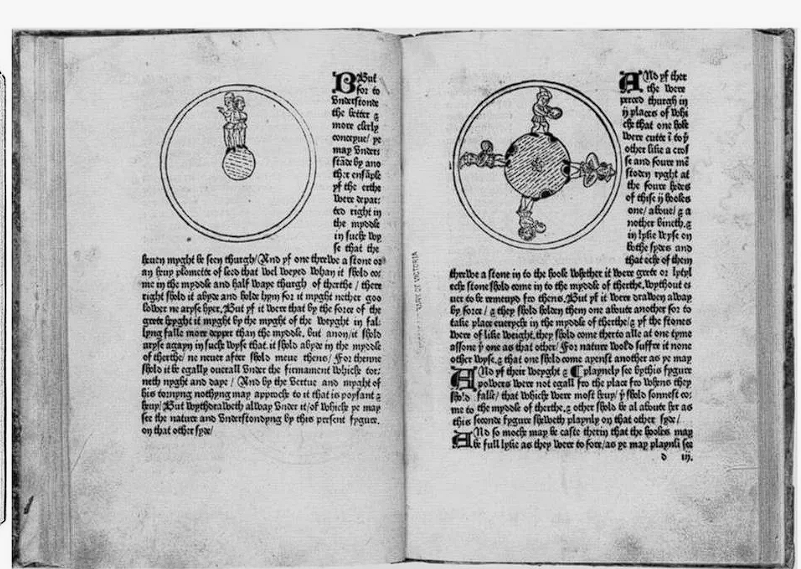 But
for to
Vnderstonde
the better &
more clerly
conceyue/ ye
may Vnder
stāde by ano
ther ensāple
yf the erthe
were depar
ted right in
the myddle
in suche wy
se that the
heuen myght be seen thurgh/ And yf one threwe a stone or
an heuy plomette of leed that wel weyed whan it shold co
me in the myddle and half waye thurgh of therthe / there
right shold it abyde and holde hym for it myght nether goo
lower ne aryse hyer, But yf it were that by the force of the
grete heyght it myght by the myght of the weyght in fal
lyng falle more depper than the myddle. but anon/it shold
aryse agayn in suche wyse that it shold abyde in the myddle
of therthe/ ne neuer after shold meue thens/ For thenne
shold it be egally ouerall Vnder the firmament whiche tor
neth nyght and daye / And by the Vertue and myght of
his tornyng nothyng may approche to it that is poysant &
heuy/ But wythdraweth alway Vnder it/of whiche ye may
see the nature and Vnderstondyng by this present fygure.
on that other syde/
ANd yf ther
the were
perced thurgh in
ij places of whi
che that one hole
were cutte ī to yͤ
other like a cros
se and foure mē
stoden ryght at
the foure hedes
of thise ij holes
one/ aboue/ & a
nother bineth, &
in lyke wyse on
bothe sydes and
that eche of them
threwe a stone in to the hoole whether it were grete or lytyl
eche stone shold come in to the myddle of therthe, wythout e
uer to be remeuyd fro thens. But yf it were drawen away
by force / & they shold holden them one aboute another for to
take place eueryche in the myddle of therthe/& yf the stones
were of like weight, they shold come therto alle at one tyme
assone yͤ one as that other/ For nature wold suffre it none
other wyse, & that one shold come ayenst another as ye may
ANd yf their weyght & playnely see by this fygure
powers were not egall fro the place fro whens they
shold falle/ that whiche were most heuy/ yͭ shold sonnest co
me to the myddle of therthe, & other shold be al aboute her as
this seconde fygure sheweth playnly on that other syde/
ANd so moche may be caste therin that the hooles may
be full lyke as they were to fore/as ye may playnli see
d iij.
OF VICTORIA